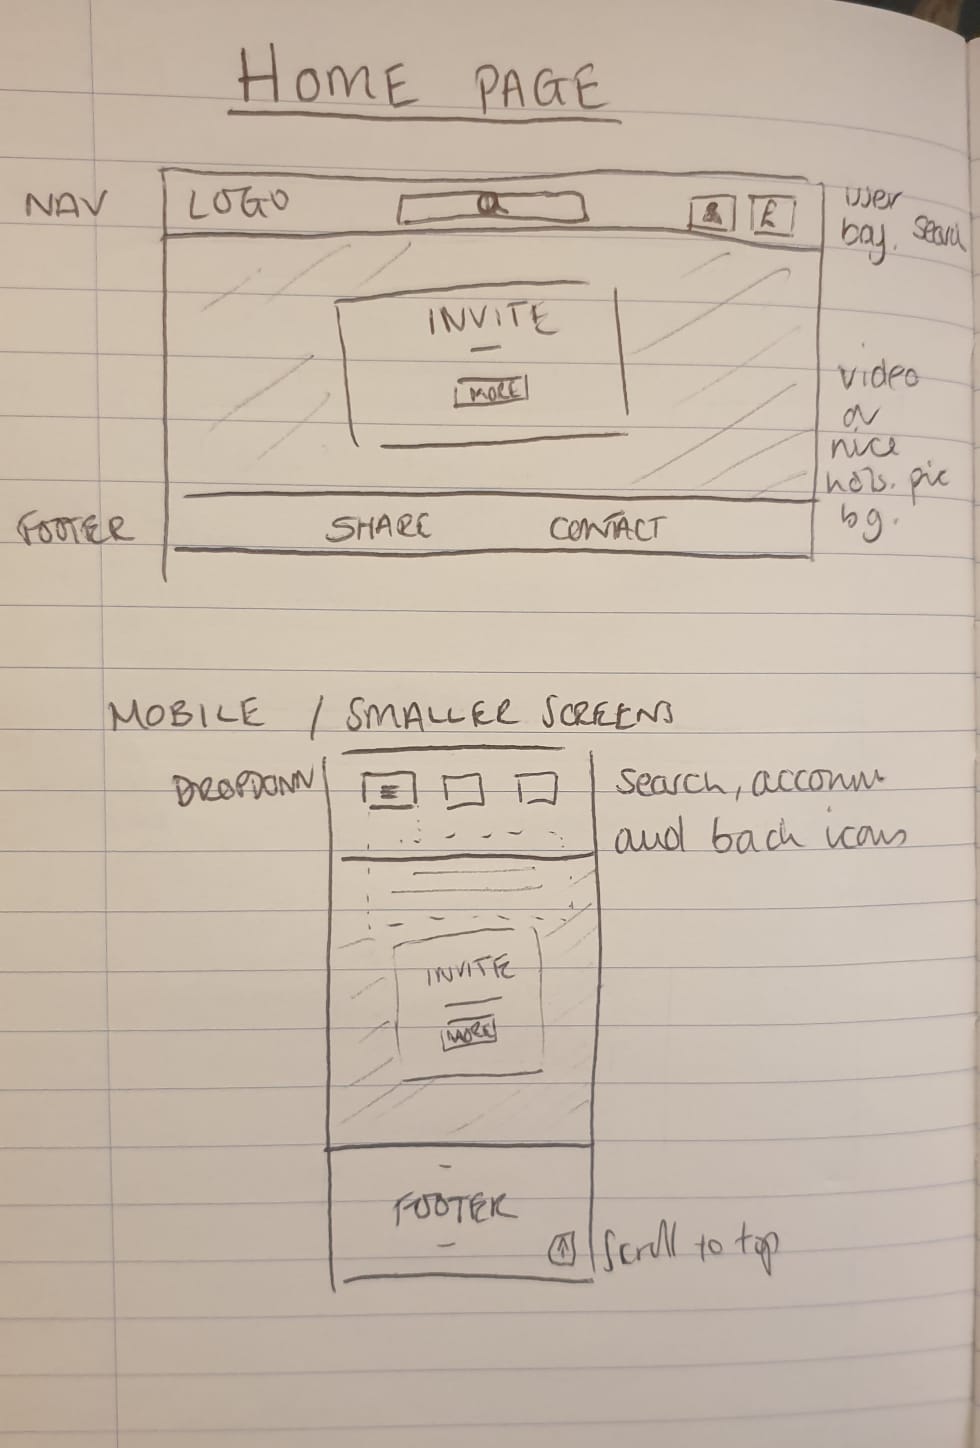 HOME PAGE
NAV
LOGO
£
user
bag. search
INVITE
MORE
video
or
nice
hols. pic
bg.
FOOTER
SHARE
CONTACT
MOBILE / SMALLER SCREENS
DROPDOWN
search, account
and back icons
INVITE
MORE
FOOTER
scroll to top